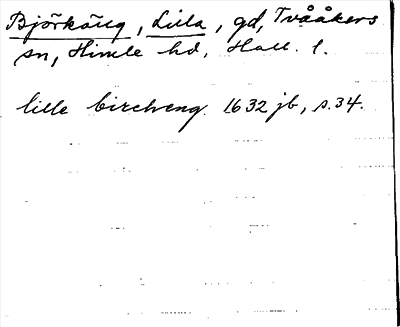 Björkäng, Lilla, gd, Tvååkers
sn, Himle hd, Hall. l.
lille bircheng. 1632 jb, s.34.